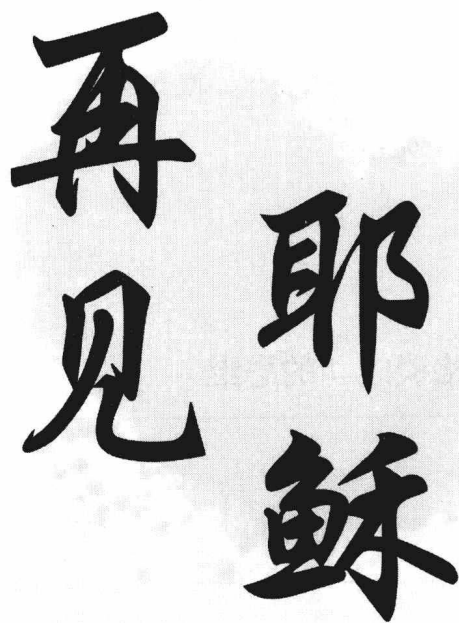 再见
耶稣